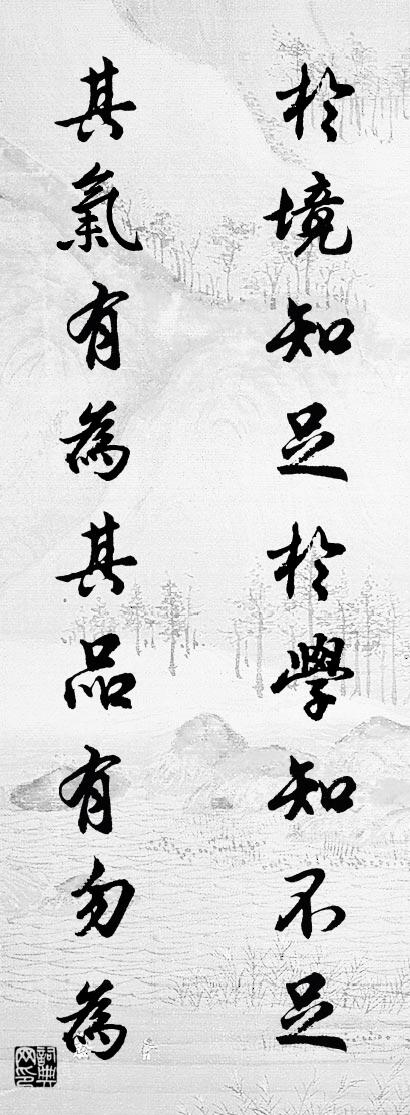 於境知足於學知不足
其氣有為其品有勿為
詞典網印